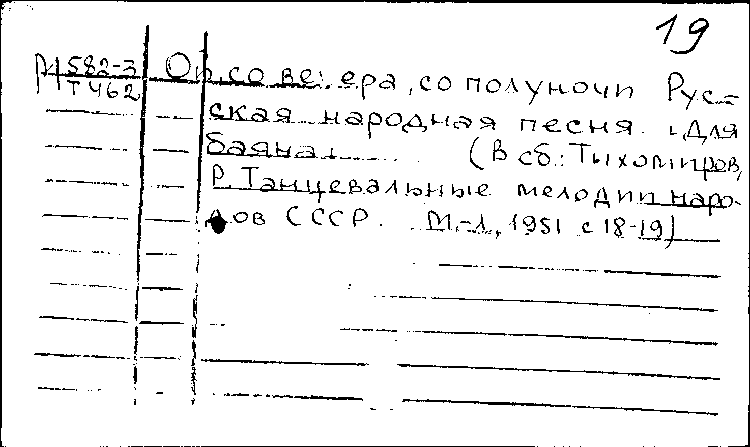 19
М 582-3 Ой, со вечера, со полуночи Рус-
Т 462 ская народная песня. Для
баяна. (В сб.: Тихомиров,
Р. Танцевальные мелодии наро-
дов СССР. М.-Л., 1951 с 18-19)